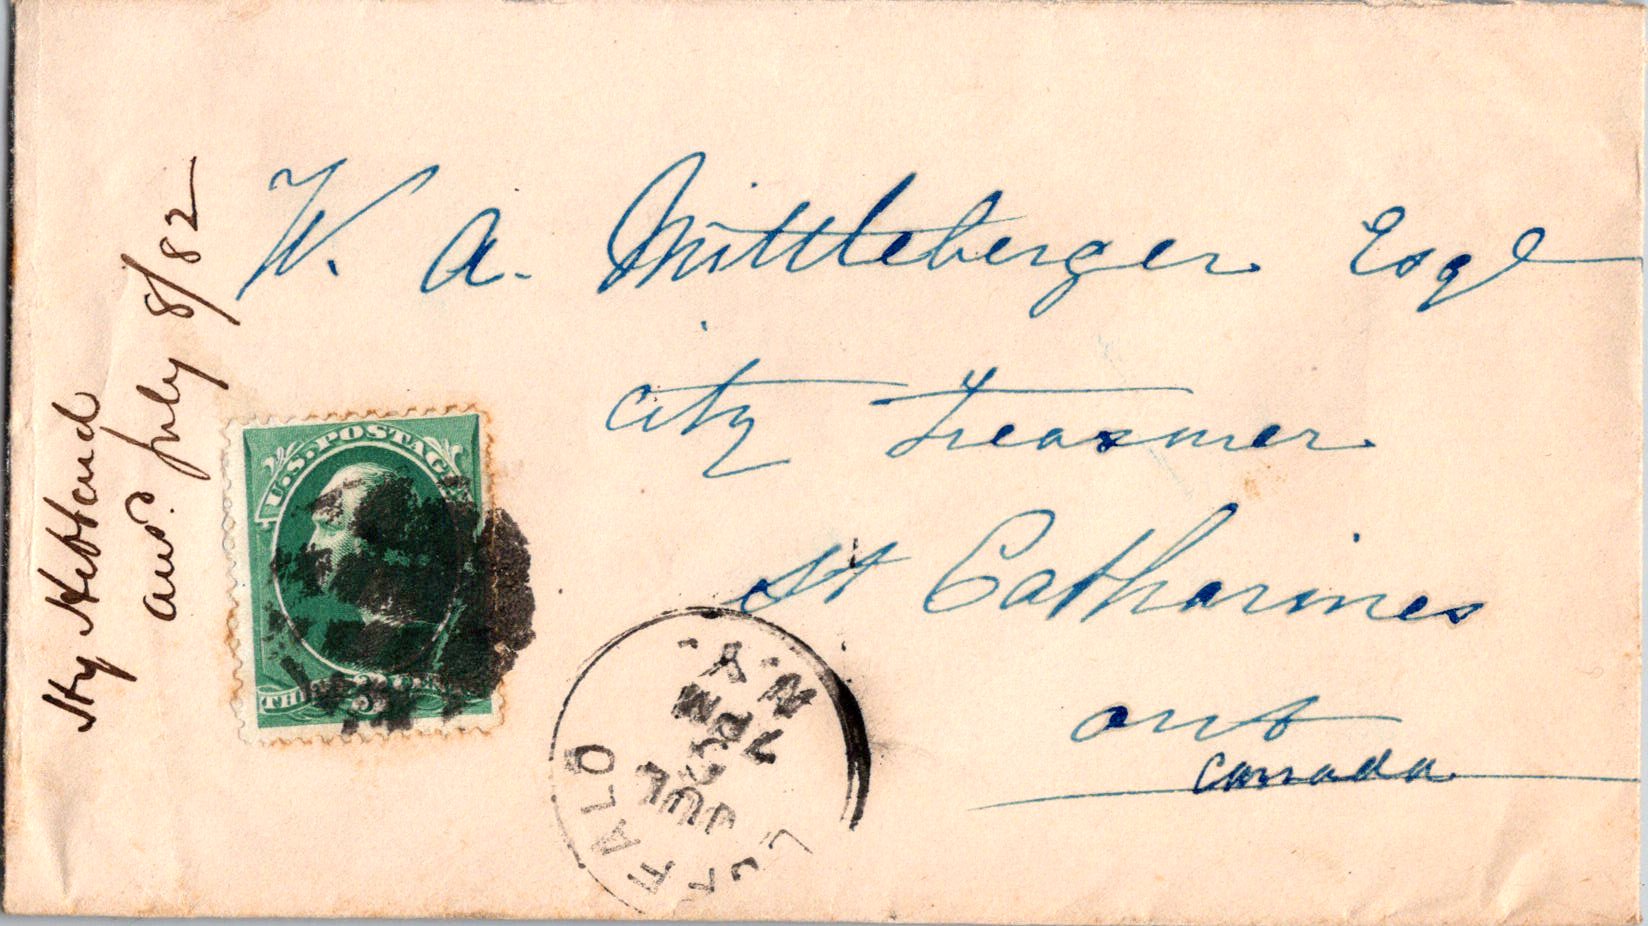 W. A. Mittleberger Esqe
City Treasurer
St Catharines
Ont
Canada
Hy Hibbard
ans. July 8/82
U.S. POSTAGE
THREE 3 CENTS
BUFFALO N.Y.
JUL
7 PM